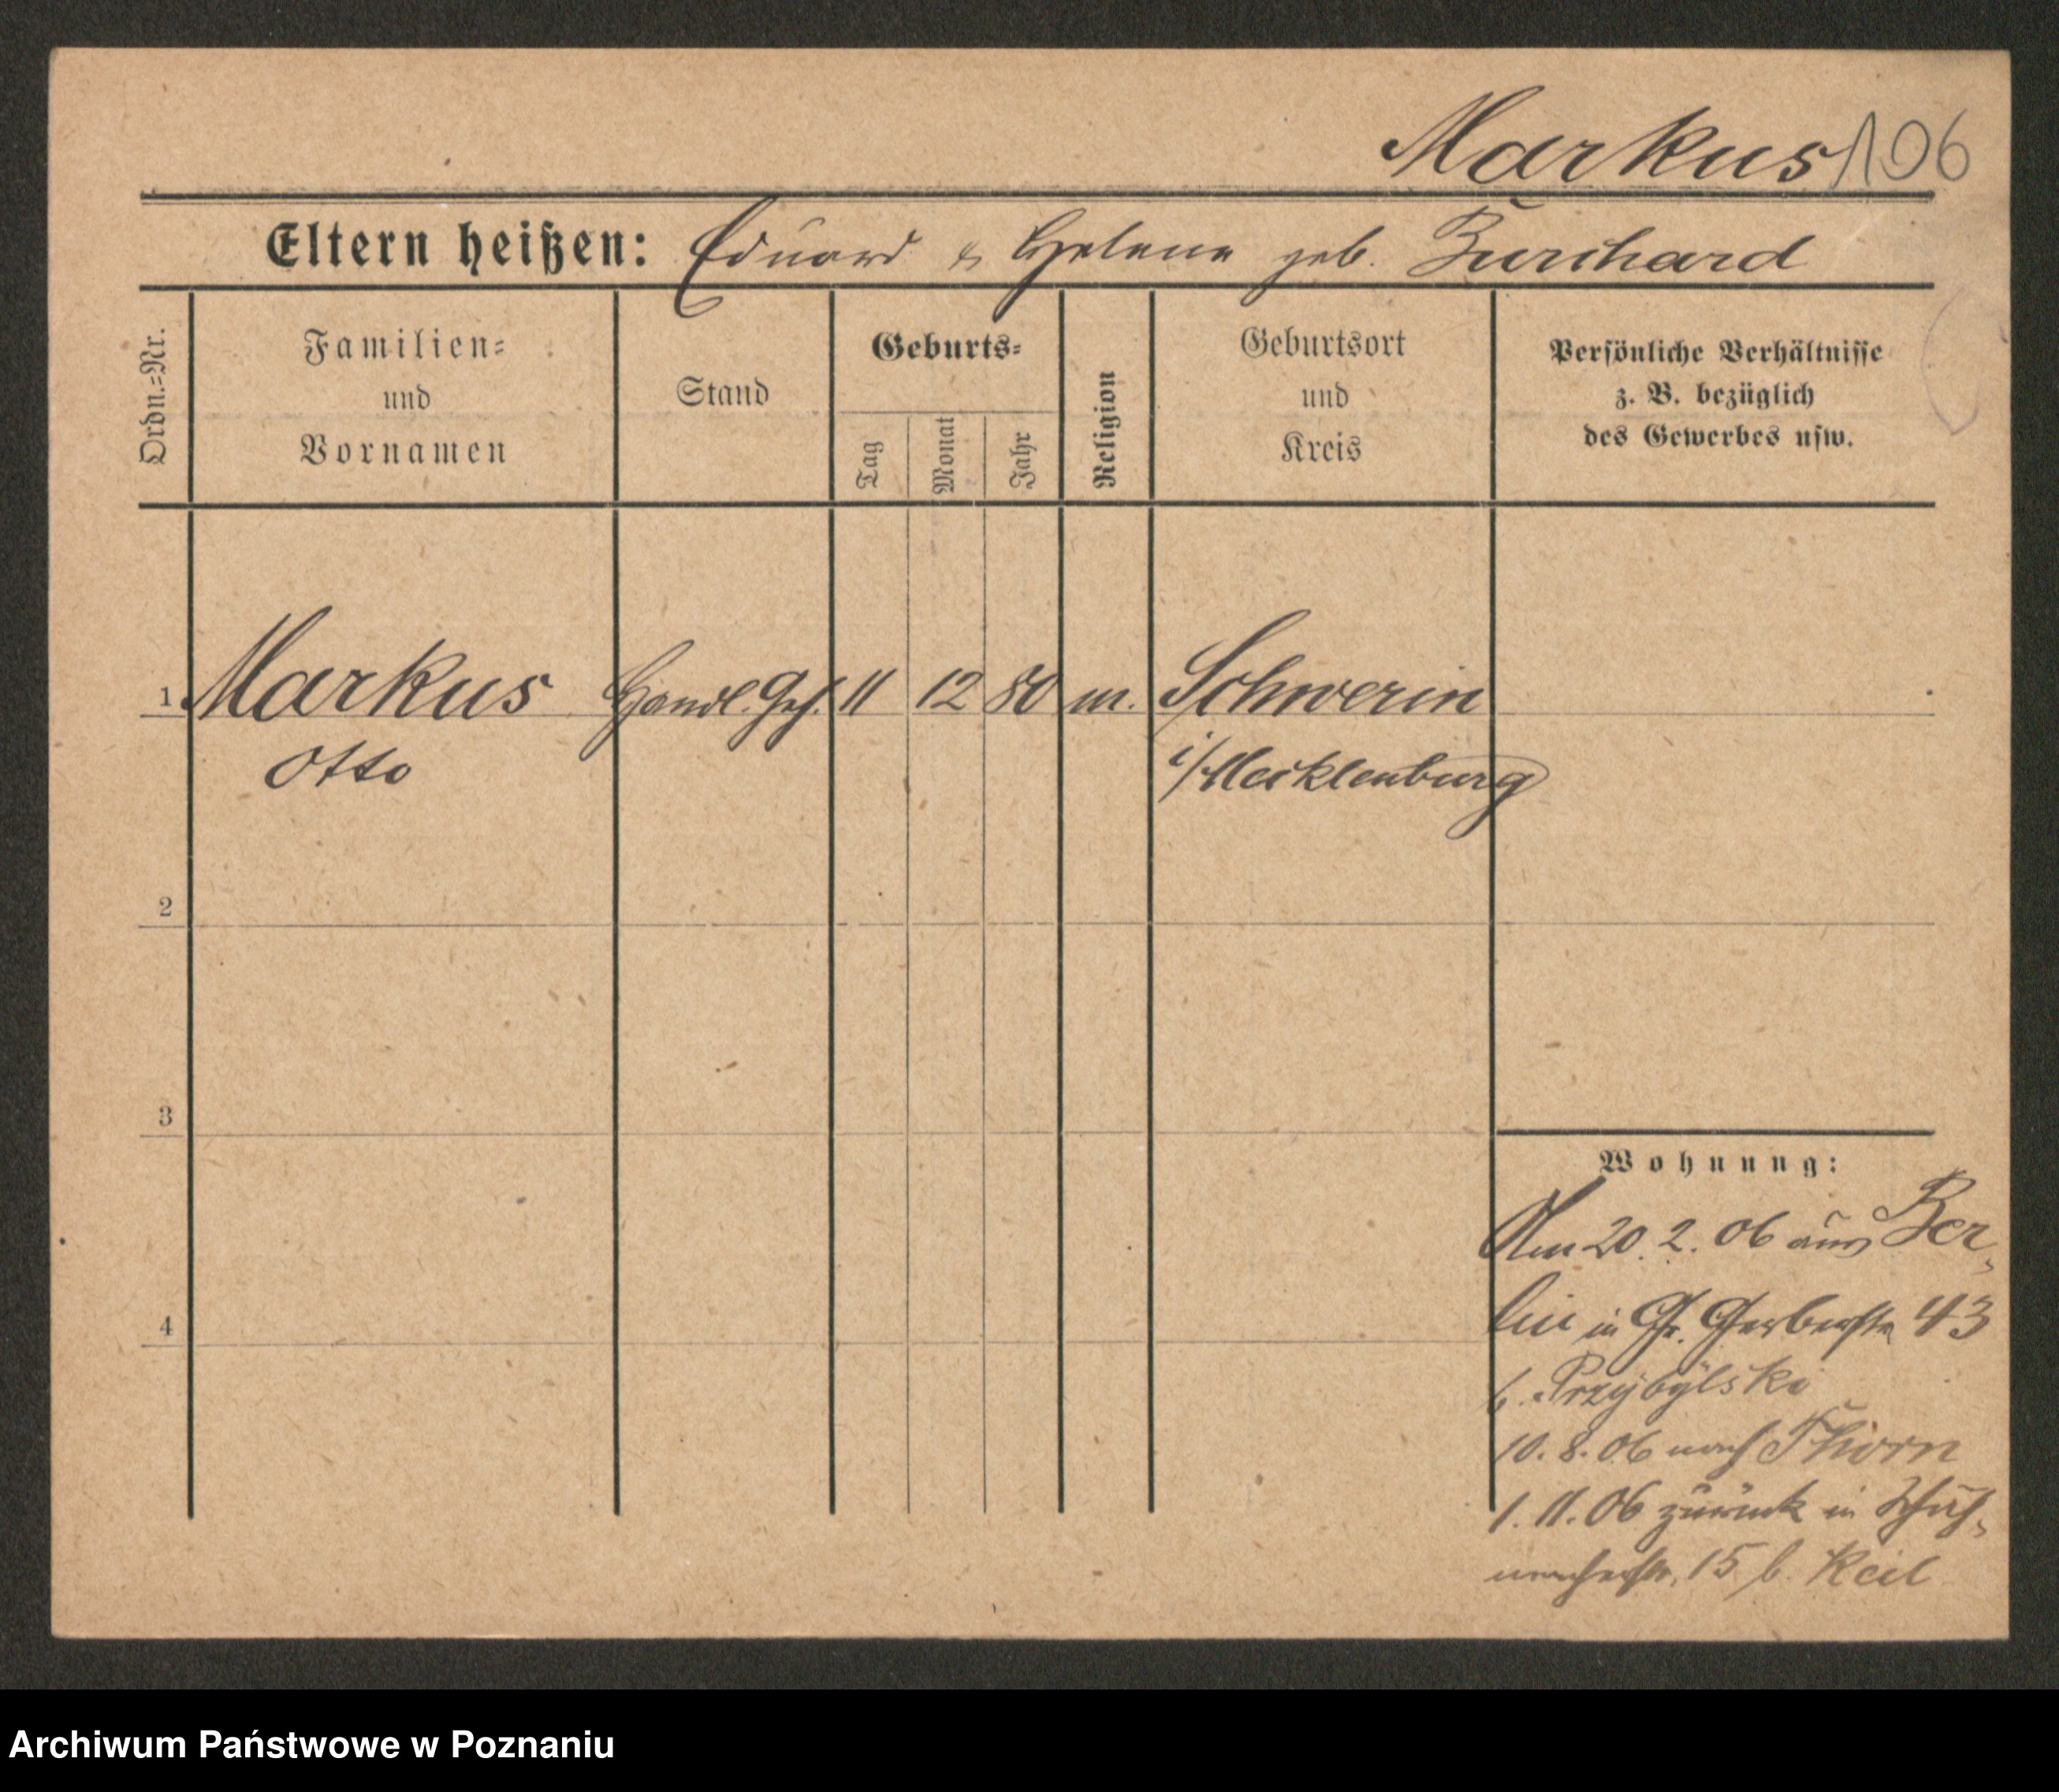 Markus 106
Eltern heißen: Eduard & Helene geb. Burchard
Ordn.=Nr.
Familien=
und
Vornamen
Stand
Geburts=
Tag
Monat
Jahr
Religion
Geburtsort
und
Kreis
Persönliche Verhältnisse
z. B. bezüglich
des Gewerbes usw.
1 Markus Handl. Geh. 11 12 80 m. Schwerin
Otto i/Mecklenburg
2
3
4
Wohnung:
Am 20. 2. 06 aus Ber-
lin in Gr. Gerberstr 43
b. Przybylski
10. 8. 06 nach Thorn
1. 11. 06 zurück in Schuh-
macherstr. 15 b. Keil
Archiwum Państwowe w Poznaniu